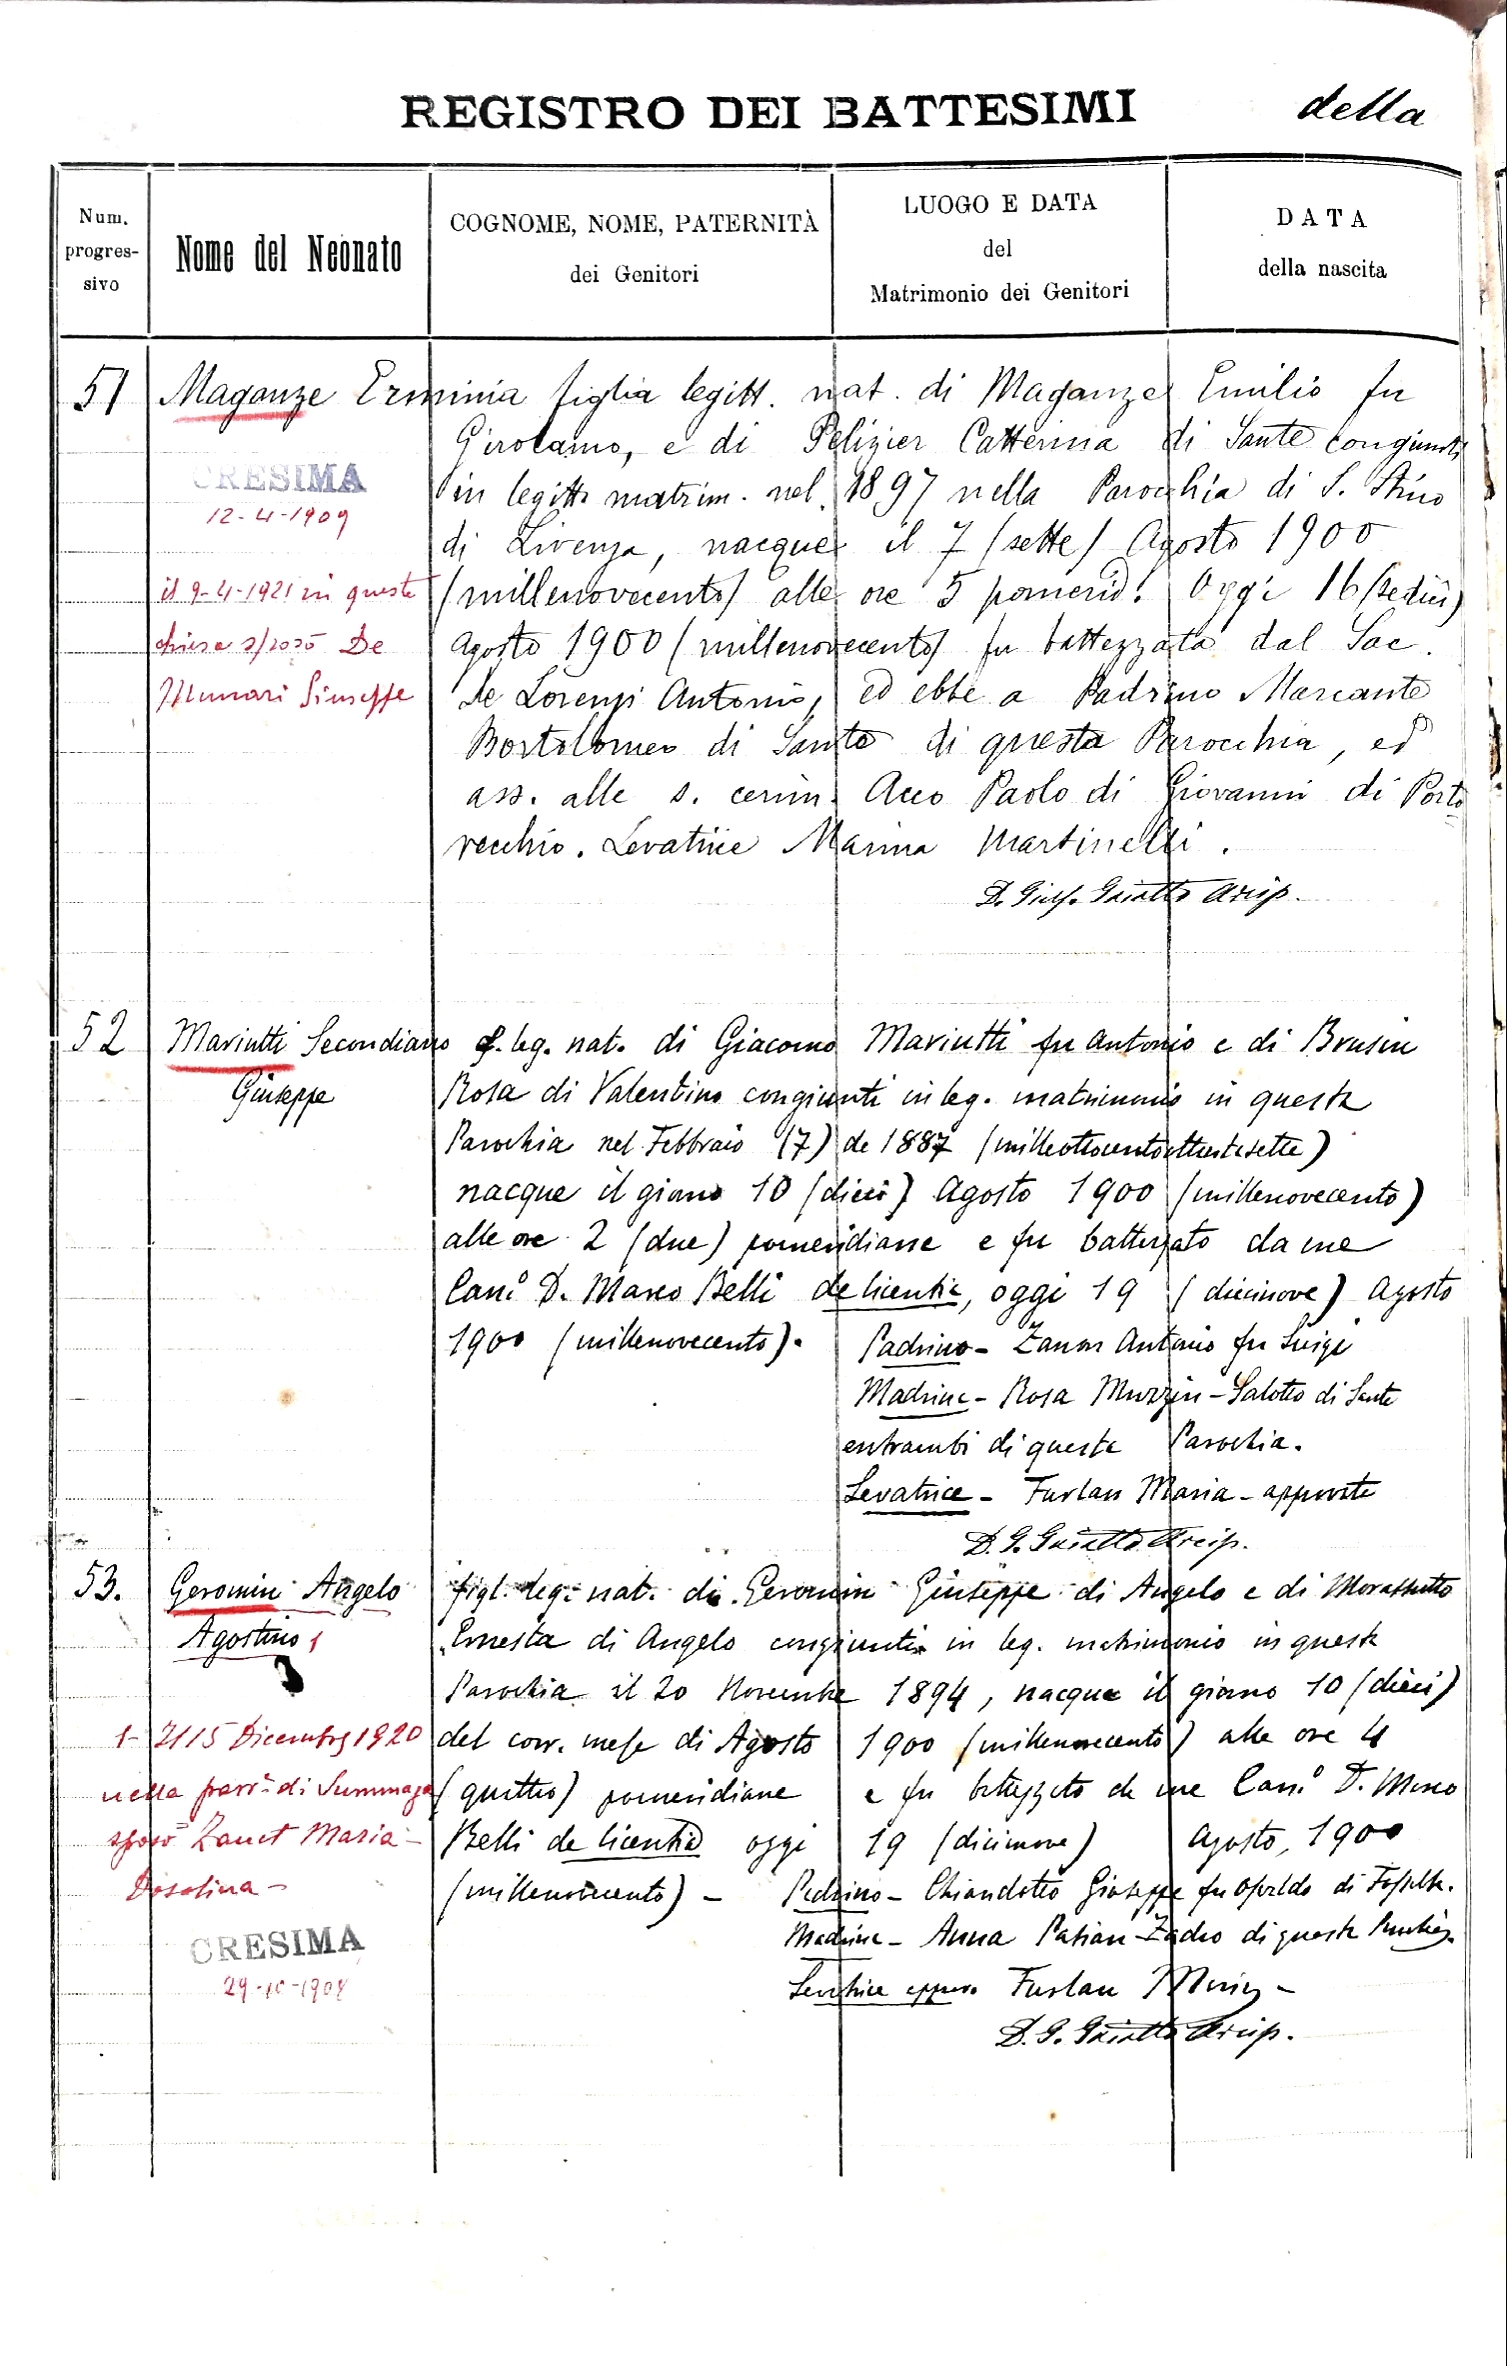 REGISTRO DEI BATTESIMI della
Num.
progres-
sivo
Nome del Neonato
COGNOME, NOME, PATERNITÀ
dei Genitori
LUOGO E DATA
del
Matrimonio dei Genitori
DATA
della nascita
51 Maganze Erminia figlia legitt. nat. di Maganze Emilio fu
Girolamo, e di Pelizier Catterina di Sante congiunti
in legitt. matrim. nel 1897 nella Parocchia di S. Stino
di Livenza, nacque il 7 (sette) Agosto 1900
(millenovecento) alle ore 5 pomerid. Oggi 16 (sedici)
Agosto 1900 (millenovecento) fu battezzata dal Sac.
de Lorenzi Antonio, ed ebbe a Padrino Marcante
Bortolomeo di Sante di questa Parocchia, ed
ass. alle s. cerim. Acco Paolo di Giovanni di Porto
vecchio. Levatrice Marina Martinelli.
D. Gius. Gaiatto Arcip.
CRESIMA
12-4-1909
il 9-4-1921 in questa
chiesa sposò De
Munari Giuseppe
52 Mariutti Secondiano f. leg. nat. di Giacomo Mariutti fu Antonio e di Brusin
Giuseppe Rosa di Valentino congiunti in leg. matrimonio in questa
Parochia nel Febbraio (7) de 1887 (milleottocentottantasette)
nacque il giorno 10 (dieci) Agosto 1900 (millenovecento)
alle ore 2 (due) pomeridiane e fu battezzato da me
Can.º D. Marco Belli de licentia, oggi 19 (diecinove) Agosto
1900 (millenovecento). Padrino - Zanon Antonio fu Luigi
Madrina - Rosa Muzzin - Salotto di Sante
entrambi di questa Parochia.
Levatrice - Furlan Maria - approvata
D. G. Gaiatto Arcip.
53. Geromin Angelo figl. leg. nat. di Geromin Giuseppe di Angelo e di Morassutto
Agostino 1 Ernesta di Angelo congiunti in leg. matrimonio in questa
Parochia il 20 Novembre 1894, nacque il giorno 10 (dieci)
del corr. mese di Agosto 1900 (millenovecento) alle ore 4
(quattro) pomeridiane e fu battezzato da me Can.º D. Marco
Belli de licentia oggi 19 (dicinove) Agosto, 1900
(millenovecento) - Padrino - Chiandotto Giuseppe fu Osvaldo di Fossalta.
Madrina - Anna Patian-Zadro di questa Parochia.
Levatrice approv. Furlan Maria -
D. G. Gaiatto Arcip.
1- Il 15 Dicembre 1920
nella parr. di Summaga
sposò Zanet Maria -
Rosalina -
CRESIMA
29-10-1908